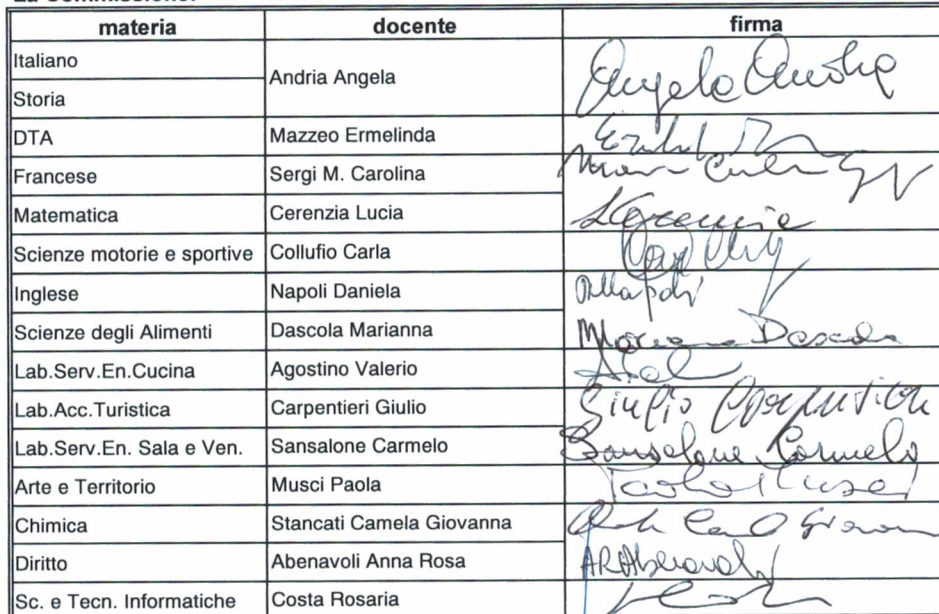 La Commissione:
materia docente firma
Italiano Andria Angela Angela Andria
Storia
DTA Mazzeo Ermelinda
Francese Sergi M. Carolina
Matematica Cerenzia Lucia
Scienze motorie e sportive Collufio Carla
Inglese Napoli Daniela DNapoli
Scienze degli Alimenti Dascola Marianna Marianna Dascola
Lab.Serv.En.Cucina Agostino Valerio
Lab.Acc.Turistica Carpentieri Giulio Giulio Carpentieri
Lab.Serv.En. Sala e Ven. Sansalone Carmelo Sansalone Carmelo
Arte e Territorio Musci Paola Paola Musci
Chimica Stancati Camela Giovanna
Diritto Abenavoli Anna Rosa ARAbenavoli
Sc. e Tecn. Informatiche Costa Rosaria